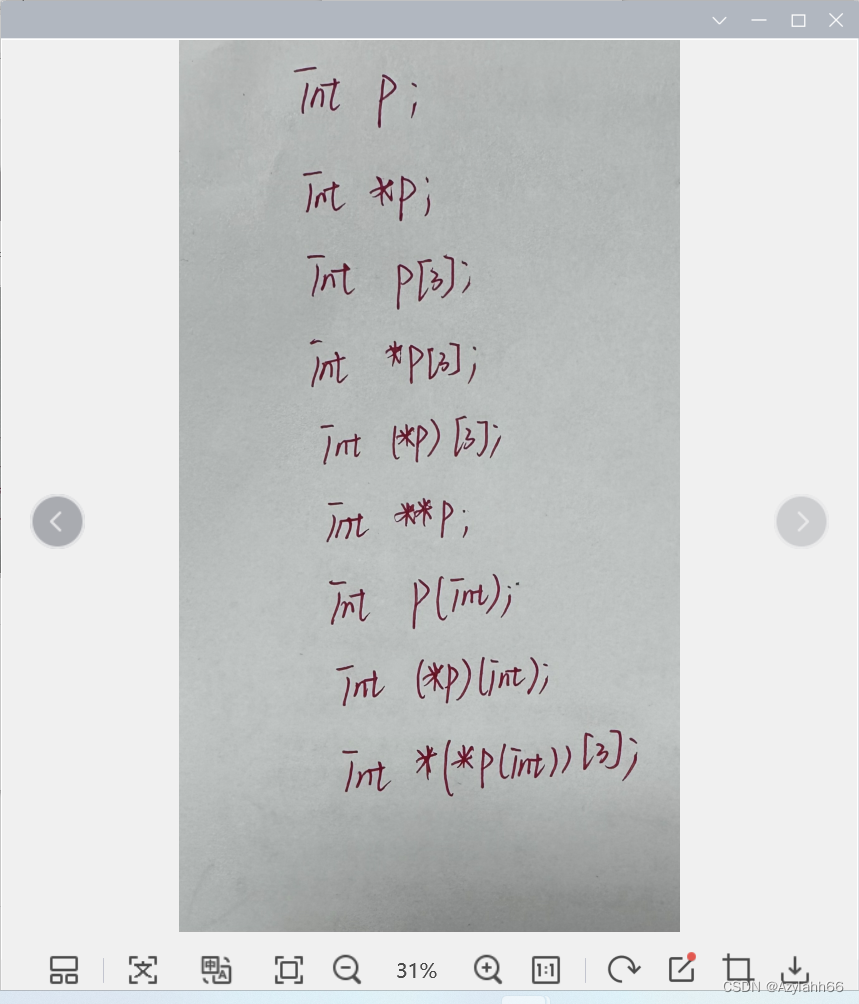 int p;
int *p;
int p[3];
int *p[3];
int (*p)[3];
int **p;
int p(int);
int (*p)(int);
int *(*p(int))[3];
31%
1:1
CSDN @Azylahh66